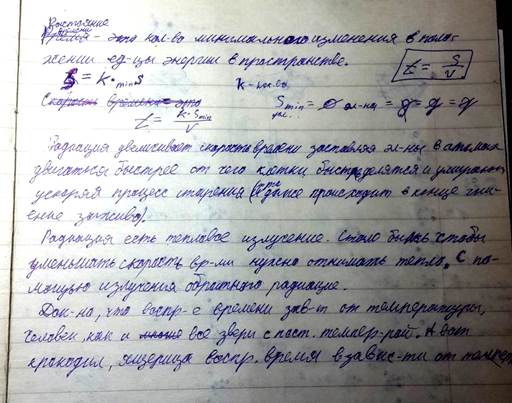 Расстояние
времени - это кол-во минимального изменения в поло-
жении ед-цы энергии в пространстве.
t = S/V
S = k · min S
k - кол-во
Скорость времени - это
S min = ø эл-на = = =
t = k · S min / V
Радиация увеличивает скорость времени заставляя эл-ны в атомах
двигаться быстрее от чего клетки быстр делятся и умирают
ускоряя процесс старения ( даже происходит в конце гни-
ение заживо).
Радиация есть тепловое излучение. Стало быть чтобы
уменьшать скорость вр-ни нужно отнимать тепло, с по-
мощью излучения обратного радиации.
Док-но, что воспр-е времени зав-т от температуры,
человек как и все звери с пост. темпер-рой. А вот
крокодил, ящерица воспр. время в завис-ти от